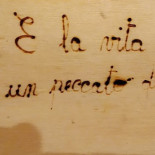 E la vita
un peccato d